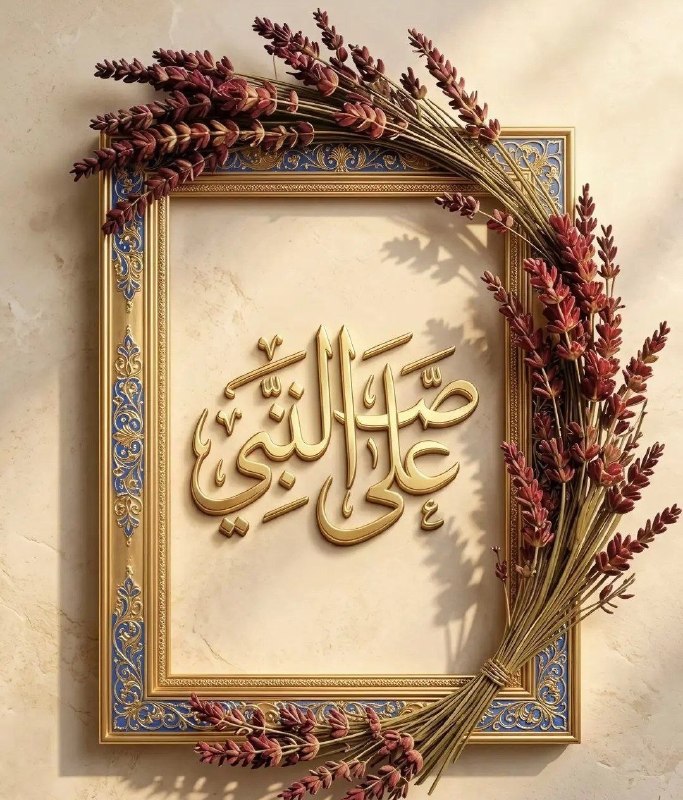 صَلِّ عَلَى النَّبِيِّ